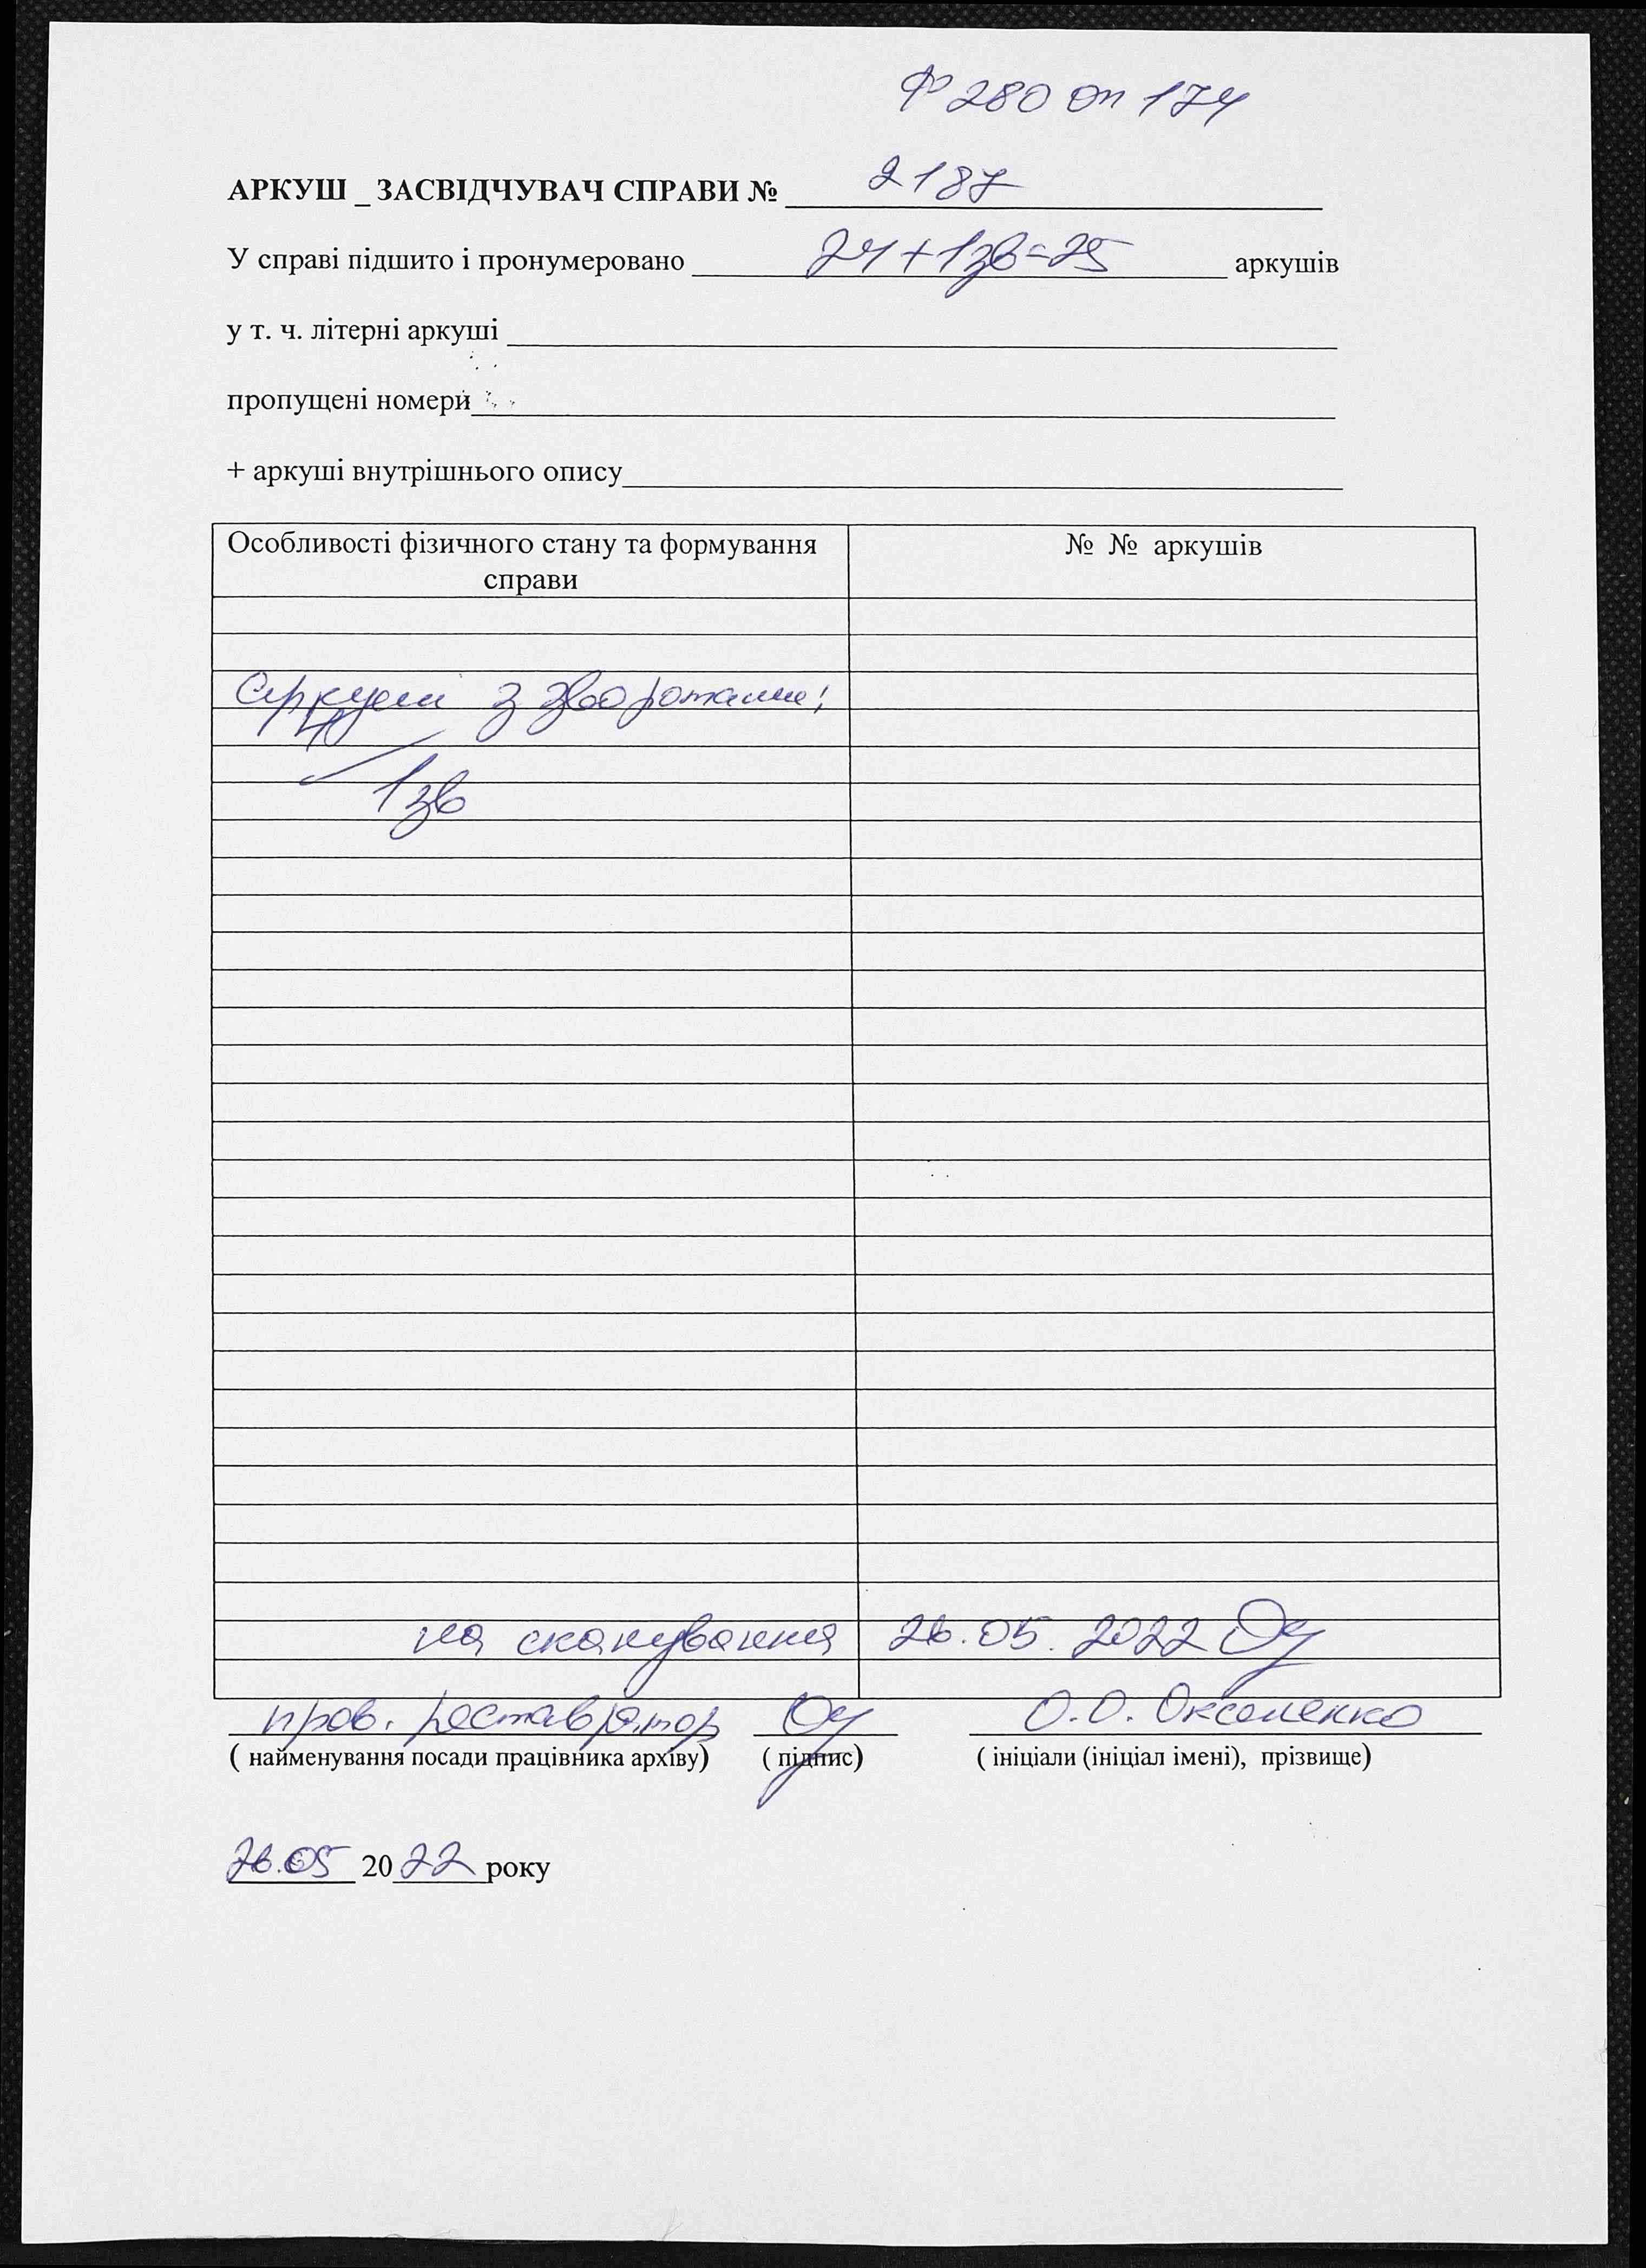 Ф 280 оп 174
АРКУШ _ ЗАСВІДЧУВАЧ СПРАВИ № 2187
У справі підшито і пронумеровано 24+1зв=25 аркушів
у т. ч. літерні аркуші
пропущені номери
+ аркуші внутрішнього опису
Особливості фізичного стану та формування справи
№ № аркушів
Аркуші з зворотами:
1зв
на сканування 26.05.2022
пров. реставратор О.О. Оксененко
( найменування посади працівника архіву) ( підпис) ( ініціали (ініціал імені), прізвище)
26.05 2022 року